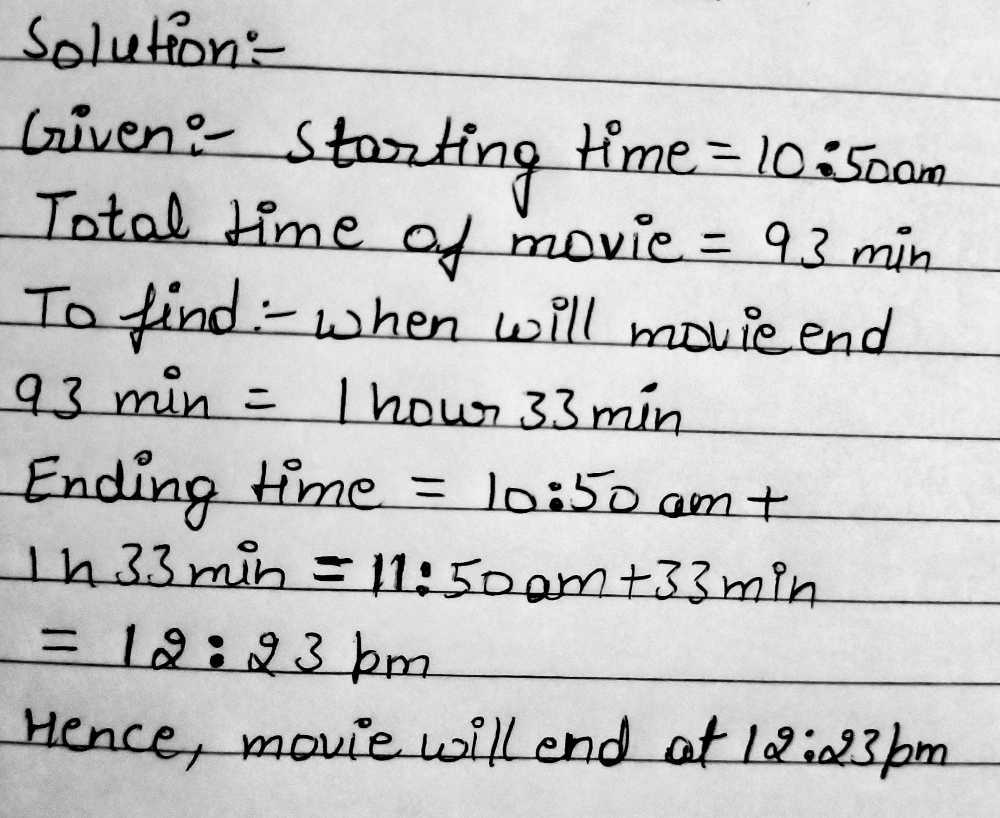 Solution:-
Given:- Starting time = 10:50am
Total time of movie = 93 min
To find :- when will movie end
93 min = 1 hour 33 min
Ending time = 10:50 am +
1h 33 min = 11:50am + 33 min
= 12:23 pm
Hence, movie will end at 12:23pm